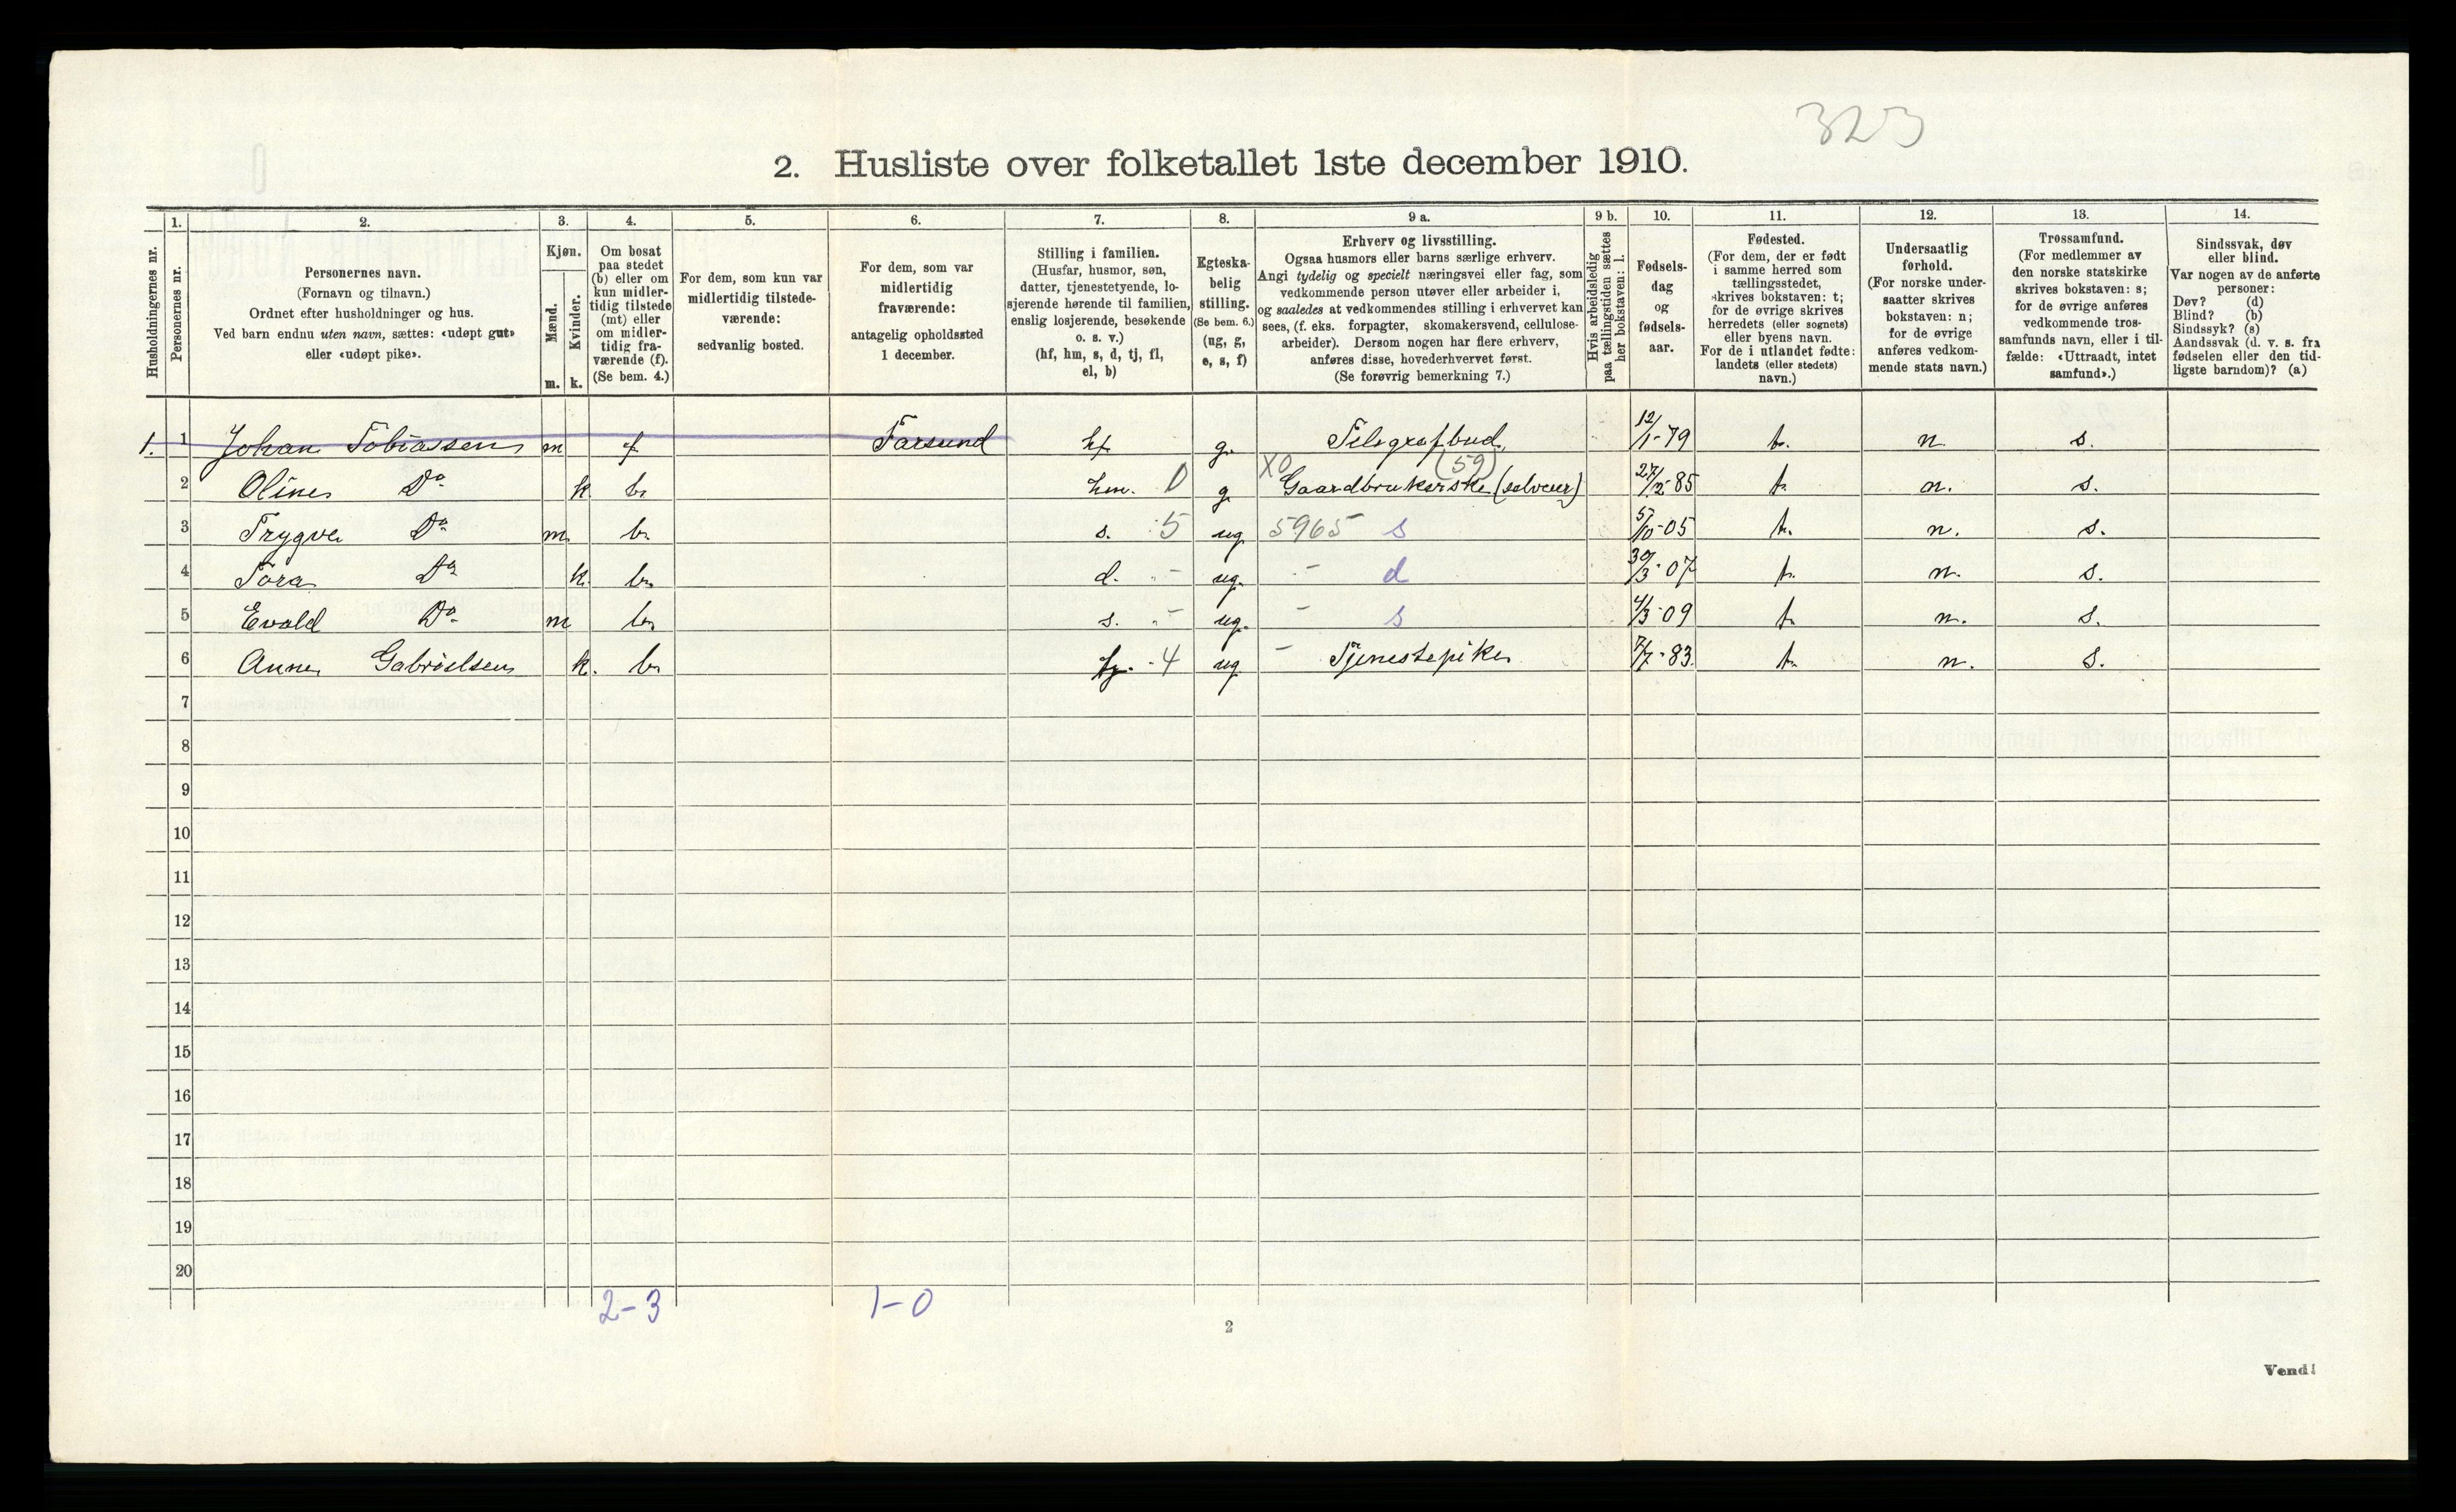 323
2. Husliste over folketallet 1ste december 1910.
Husholdningernes nr.
1.
Personernes nr.
2.
Personernes navn.
(Fornavn og tilnavn.)
Ordnet efter husholdninger og hus.
Ved barn endnu uten navn, sættes: «udøpt gut»
eller «udøpt pike».
3.
Kjøn.
Mænd.
Kvinder.
m. k.
4.
Om bosat
paa stedet
(b) eller om
kun midler-
tidig tilstede
(mt) eller
om midler-
tidig fra-
værende (f).
(Se bem. 4.)
5.
For dem, som kun var
midlertidig tilstede-
værende:
sedvanlig bosted.
6.
For dem, som var
midlertidig
fraværende:
antagelig opholdssted
1 december.
7.
Stilling i familien.
(Husfar, husmor, søn,
datter, tjenestetyende, lo-
sjerende hørende til familien,
enslig losjerende, besøkende
o. s. v.)
(hf, hm, s, d, tj, fl,
el, b)
8.
Egteska-
belig
stilling.
(Se bem. 6.)
(ug, g,
e, s, f)
9 a.
Erhverv og livsstilling.
Ogsaa husmors eller barns særlige erhverv.
Angi tydelig og specielt næringsvei eller fag, som
vedkommende person utøver eller arbeider i,
og saaledes at vedkommendes stilling i erhvervet kan
sees, (f. eks. forpagter, skomakersvend, cellulose-
arbeider). Dersom nogen har flere erhverv,
anføres disse, hovederhvervet først.
(Se forøvrig bemerkning 7.)
9 b.
Hvis arbeidsledig
paa tællingstiden sættes
her bokstaven: l.
10.
Fødsels-
dag
og
fødsels-
aar.
11.
Fødested.
(For dem, der er født
i samme herred som
tællingsstedet,
skrives bokstaven: t;
for de øvrige skrives
herredets (eller sognets)
eller byens navn.
For de i utlandet fødte:
landets (eller stedets)
navn.)
12.
Undersaatlig
forhold.
(For norske under-
saatter skrives
bokstaven: n;
for de øvrige
anføres vedkom-
mende stats navn.)
13.
Trossamfund.
(For medlemmer av
den norske statskirke
skrives bokstaven: s;
for de øvrige anføres
vedkommende tros-
samfunds navn, eller i til-
fælde: «Uttraadt, intet
samfund».)
14.
Sindssvak, døv
eller blind.
Var nogen av de anførte
personer:
Døv? (d)
Blind? (b)
Sindssyk? (s)
Aandssvak (d. v. s. fra
fødselen eller den tid-
ligste barndom)? (a)
1. 1 Johan Tobiassen m f Farsund hf g. Telegrafbud 12/1-79 t. n. s.
2 Oline Do k. b. hm. 0 g X0 Gaardbrukerske (selveier) (59) 27/2-85 t. n. s.
3 Trygve Do m. b. s. 5 ug 5965 s 5/10-05 t. n. s.
4 Tora Do k. b. d. - ug. - d 30/3-07 t. n. s.
5 Evald Do m b. s. - ug. - s 4/3-09 t. n. s.
6 Anne Gabrielsen k. b. tj. -4 ug - Tjenestepike 7/7-83. t. n. s.
7
8
9
10
11
12
13
14
15
16
17
18
19
20
2-3 1-0
2
Vend!